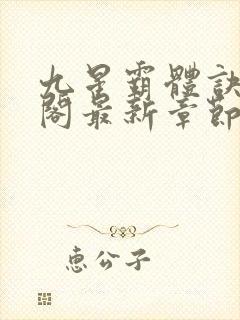 九星霸體訣
閣最新章節
惠公子